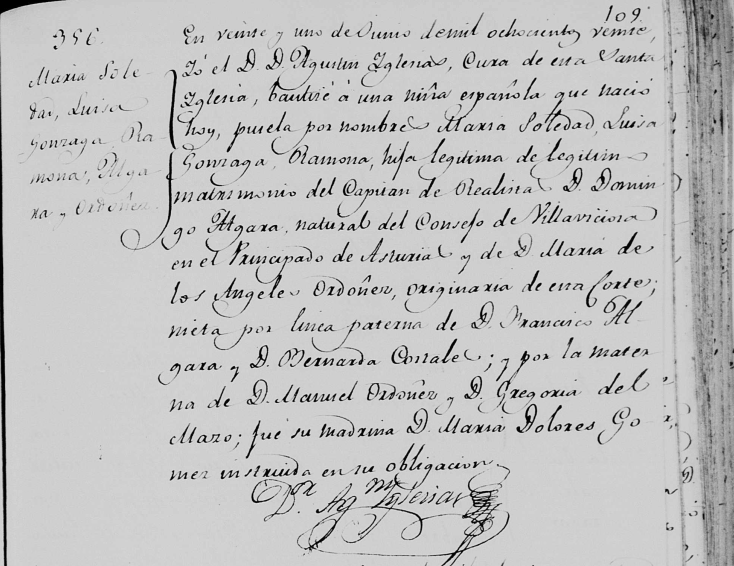 109.
356.
Maria Sole-
dad, Luisa
Gonzaga, Ra-
mona, Alga-
ra y Ordoñez.
En veinte y uno de Junio de mil ochocientos veinte,
Yó el D. D. Agustin Yglesias, Cura de esta Santa
Yglesia, bautizé á una niña española que nació
hoy, pusela por nombre Maria Soledad, Luisa
Gonzaga, Ramona, hija legitima de legitim-
matrimonio del Capitan de Realistas D. Domin
go Algara, natural del Consejo de Villaviciosa
en el Principado de Asturias y de D. Maria de
los Angeles Ordoñez, originaria de esta Corte;
nieta por linea paterna de D. Francisco Al-
gara y D. Bernarda Corrales; y por la mater-
na de D. Manuel Ordoñez y D. Gregoria del
Mazo; fué su madrina D. Maria Dolores Go-
mez instruida en su obligacion.
D.r Ag.m Yglesias